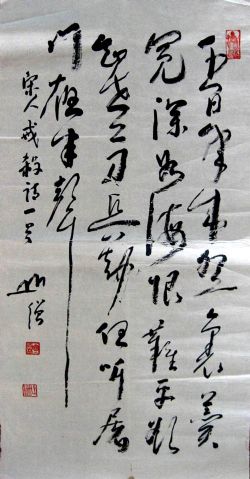 千百年来盌裏羹
冤深如海恨難平欲
知世上刀兵劫但听屠
门夜半聲
宋人戒殺诗一首
僧